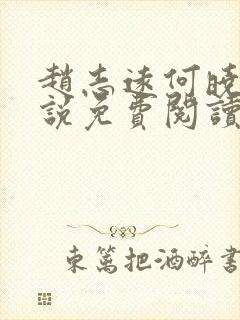 趙志遠何曉
說免費閱讀
東篱把酒醉書